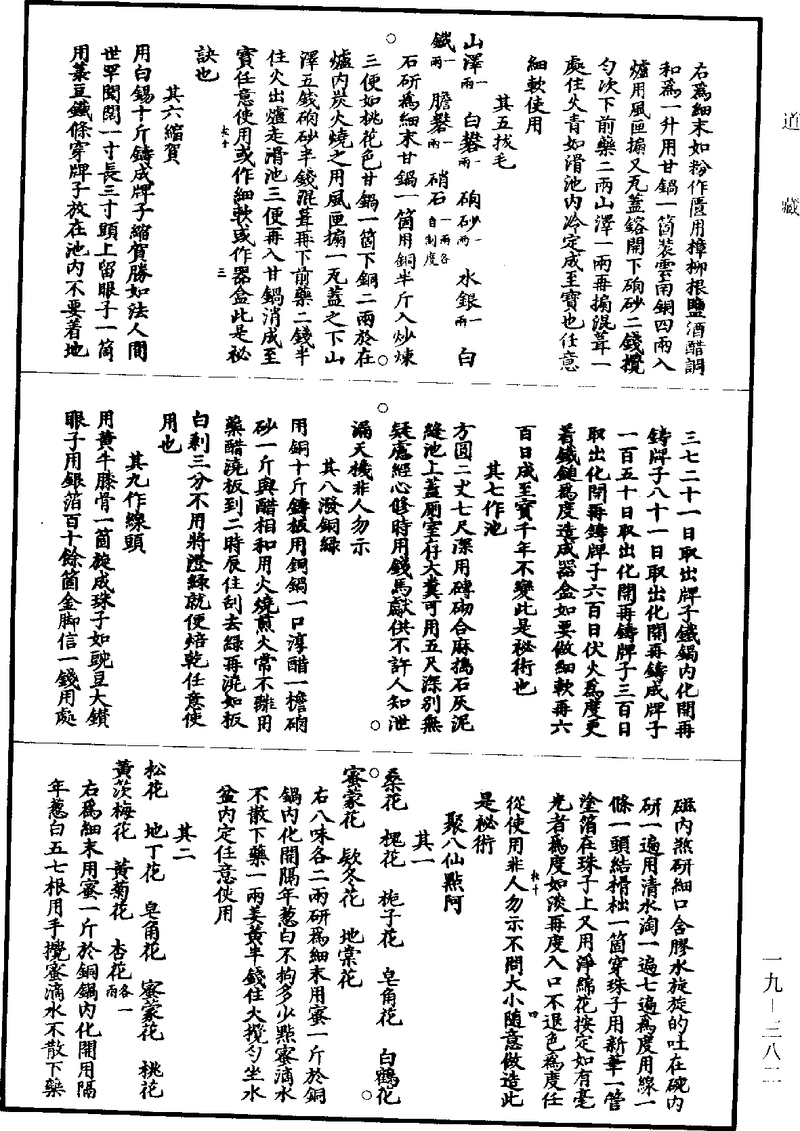 道藏
右爲細末如粉作匱用樟柳根鹽酒醋調
和爲一升用甘鍋一箇裝雲南銅四兩入
爐用風匣搧又瓦蓋鎔開下硇砂二錢攪
勻次下前藥二兩山澤一兩再搧混茸一
處住火青如滑池內冷定成至寶也任意
細軟使用
其五拔毛
山澤一兩 白礬一兩 硇砂一兩 水銀一兩 白
鐵一兩 膽礬一兩 硝石一兩各自制度
石研爲細末甘鍋一箇用銅半斤入炒煉
三便如桃花色甘鍋一箇下銅二兩於在
爐內炭火燒之用風匣搧一瓦蓋之下山
澤五錢硇砂半錢混茸再下前藥二錢半
住火出爐走滑池三便再入甘鍋消成至
寶任意使用或作細軟或作器盒此是祕
訣也
其六縮賀
用白錫十斤鑄成牌子縮賀勝如法人間
世罕闊一寸長三寸頭上留眼子一箇
用菉豆鐵條穿牌子放在池內不要着地
三七二十一日取出牌子鐵鍋內化開再
鑄牌子八十一日取出化開再鑄成牌子
一百五十日取出化開再鑄牌子三百日
取出化開再鑄牌子六百日伏火爲度更
着鐵鎚爲度造成器盒如要做細軟再六
百日成至寶千年不變此是祕術也
其七作池
方圓二丈七尺深用磚砌合麻搗石灰泥
縫池上蓋廁室行大糞可用五尺深別無
疑慮經心修時用錢馬獻供不許人知泄
漏天機非人勿示
其八潑銅綠
用銅十斤鑄板用銅鍋一口淳醋一檐硇
砂一斤與醋相和用火燒煎火常不離用
藥醋澆板到二時辰住刮去綠再澆如板
白剩三分不用將澄綠就便焙乾任意使
用也
其九作線頭
用黃牛膝骨一箇旋成珠子如豌豆大鑽
眼子用銀箔百十餘箇金脚信一錢用處
磁內煞研細口含膠水旋旋的吐在碗內
研一遍用清水淘一遍七遍爲度用線一
條一頭結榾柮一箇穿珠子用新筆一管
塗箔在珠子上又用淨綿花按定如有毫
光者爲度如淡再度入口不退色爲度任
從使用非人勿示不問大小隨意做造此
是祕術
聚八仙點阿
其一
桑花 槐花 梔子花 皂角花 白鶴花
蜜蒙花 欵冬花 地棠花
右八味各二兩研爲細末用蜜一斤於銅
鍋內化開隔年葱白不拘多少點蜜滴水
不散下藥一兩姜黃半錢住火攪勻坐水
盆內定任意使用
其二
松花 地丁花 皂角花 蜜蒙花 桃花
黃茨梅花 黃菊花 杏花各一兩
右爲細末用蜜一斤於銅鍋內化開用隔
年葱白五七根用手攪蜜滴水不散下藥
一九—三八二